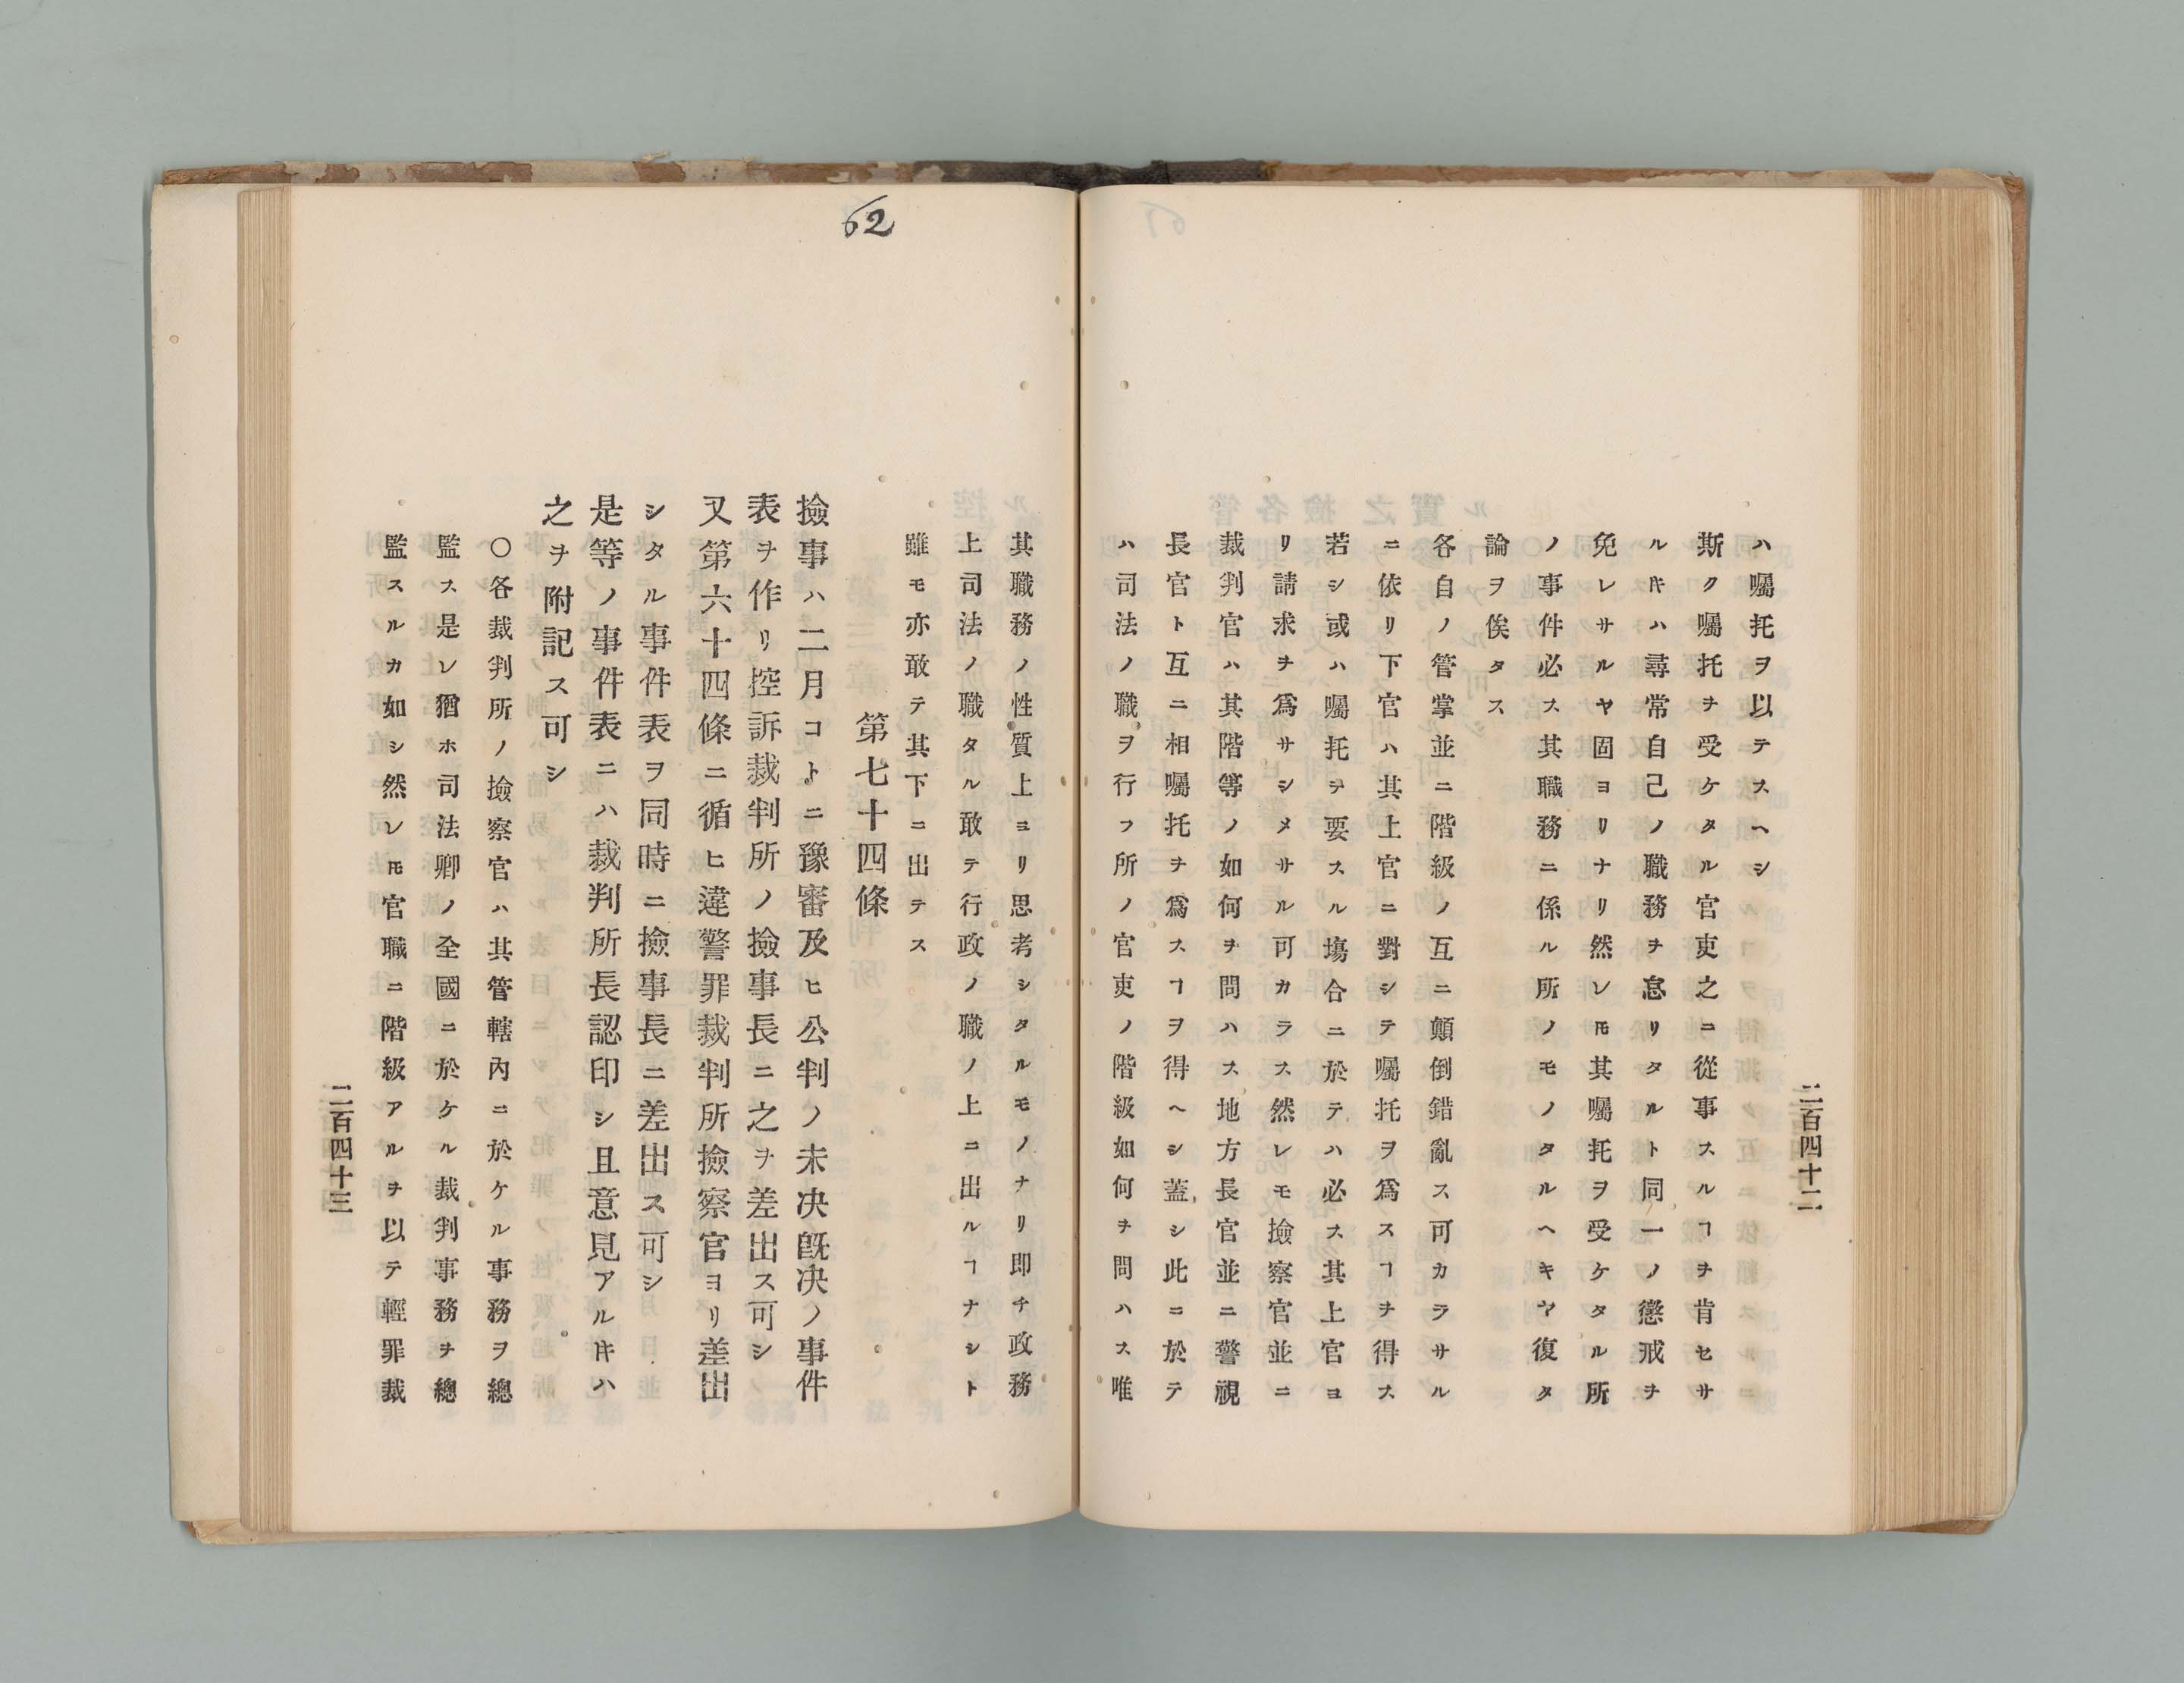 二百四十二
ハ囑托ヲ以テスヘシ
斯ク囑托ヲ受ケタル官吏之ニ從事スルヿヲ肯セサ
ルキハ尋常自己ノ職務ヲ怠リタルト同一ノ懲戒ヲ
免レサルヤ固ヨリナリ然レㇳモ其囑托ヲ受ケタル所
ノ事件必ス其職務ニ係ル所ノモノタルヘキヤ復タ
論ヲ俟タス
各自ノ管掌並ニ階級ノ互ニ顛倒錯亂ス可カラサル
ニ依リ下官ハ其上官ニ對シテ囑托ヲ爲スヿヲ得ス
若シ或ハ囑托ヲ要スル塲合ニ於テハ必ス其上官ヨ
リ請求ヲ爲サシメサル可カラス然レモ撿察官並ニ
裁判官ハ其階等ノ如何ヲ問ハス地方長官並ニ警視
長官ト互ニ相囑托ヲ爲スヿヲ得ヘシ蓋シ此ニ於テ
ハ司法ノ職ヲ行フ所ノ官吏ノ階級如何ヲ問ハス唯
62
其職務ノ性質上ヨリ思考シタルモノナリ即チ政務
上司法ノ職タル敢テ行政ノ職ノ上ニ出ルヿナシト
雖モ亦敢テ其下ニ出テス
第七十四條
撿事ハ二月コトニ豫審及ヒ公判ノ未决旣决ノ事件
表ヲ作リ控訴裁判所ノ撿事長ニ之ヲ差出ス可シ
又第六十四條ニ循ヒ違警罪裁判所撿察官ヨリ差出
シタル事件表ヲ同時ニ撿事長ニ差出ス可シ
是等ノ事件表ニハ裁判所長認印シ且意見アルキハ
之ヲ附記ス可シ
〇各裁判所ノ撿察官ハ其管轄內ニ於ケル事務ヲ總
監ス是レ猶ホ司法卿ノ全國ニ於ケル裁判事務ヲ總
監スルカ如シ然レㇳモ官職ニ階級アルヲ以テ輕罪裁
二百四十三